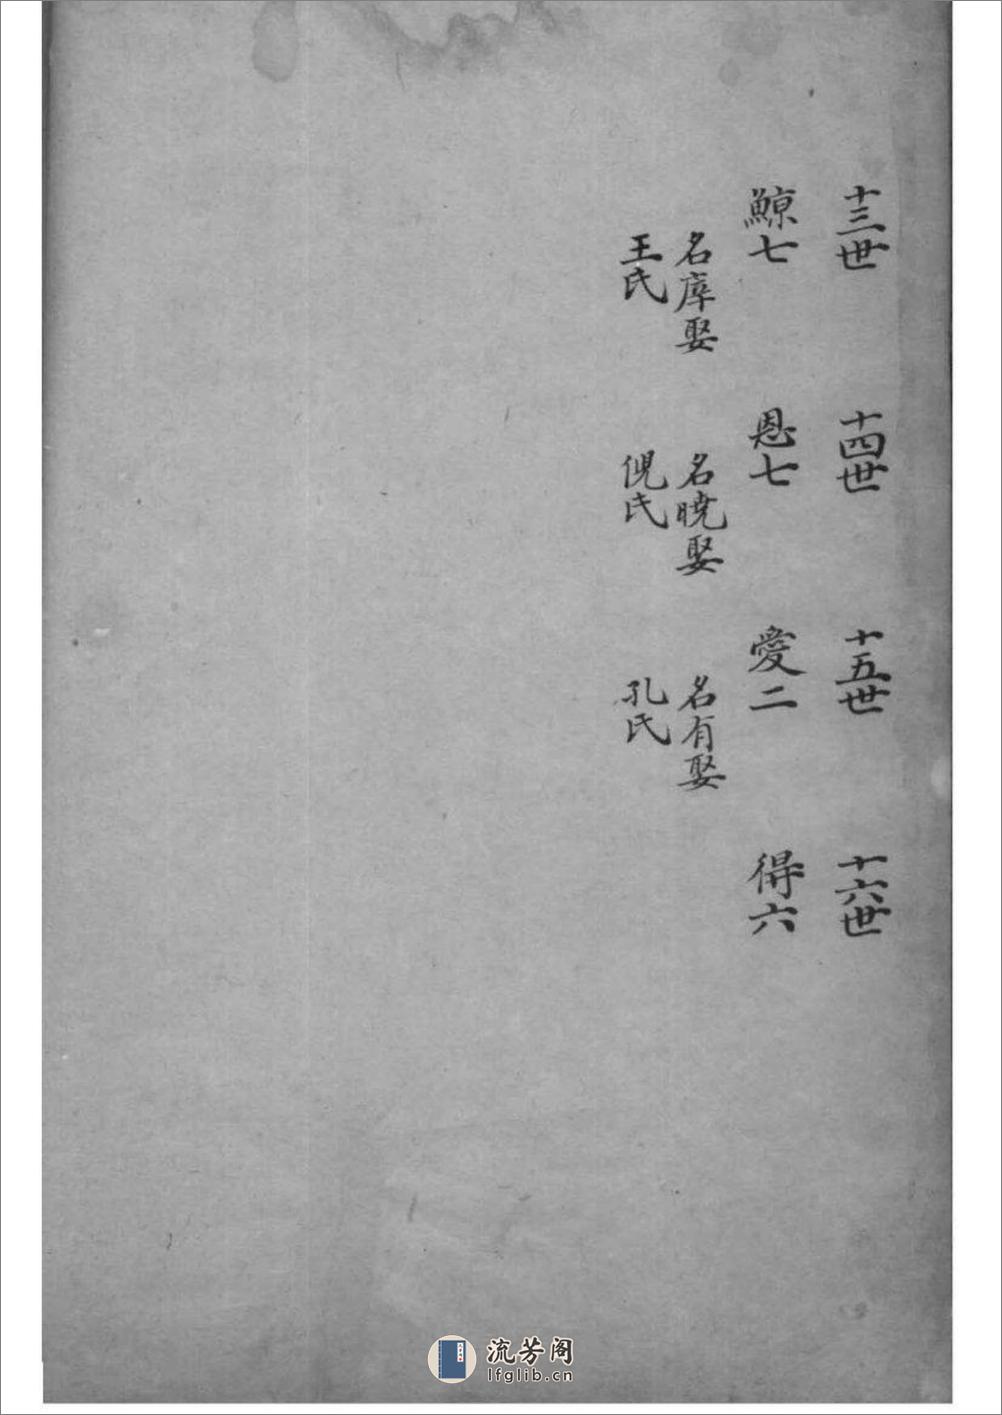 十三世
鯨七
名庠娶
王氏
十四世
恩七
名曉娶
倪氏
十五世
愛二
名有娶
孔氏
十六世
得六
流芳阁
lfglib.cn